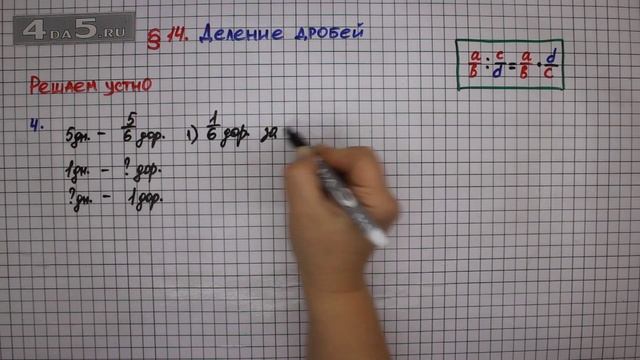 4DA5.RU
§ 14. Деление дробей
a/b : c/d = a/b · d/c
Решаем устно
4. 5дн. – 5/6 дор. 1) 1/6 дор. за
1дн. – ? дор.
?дн. – 1 дор.